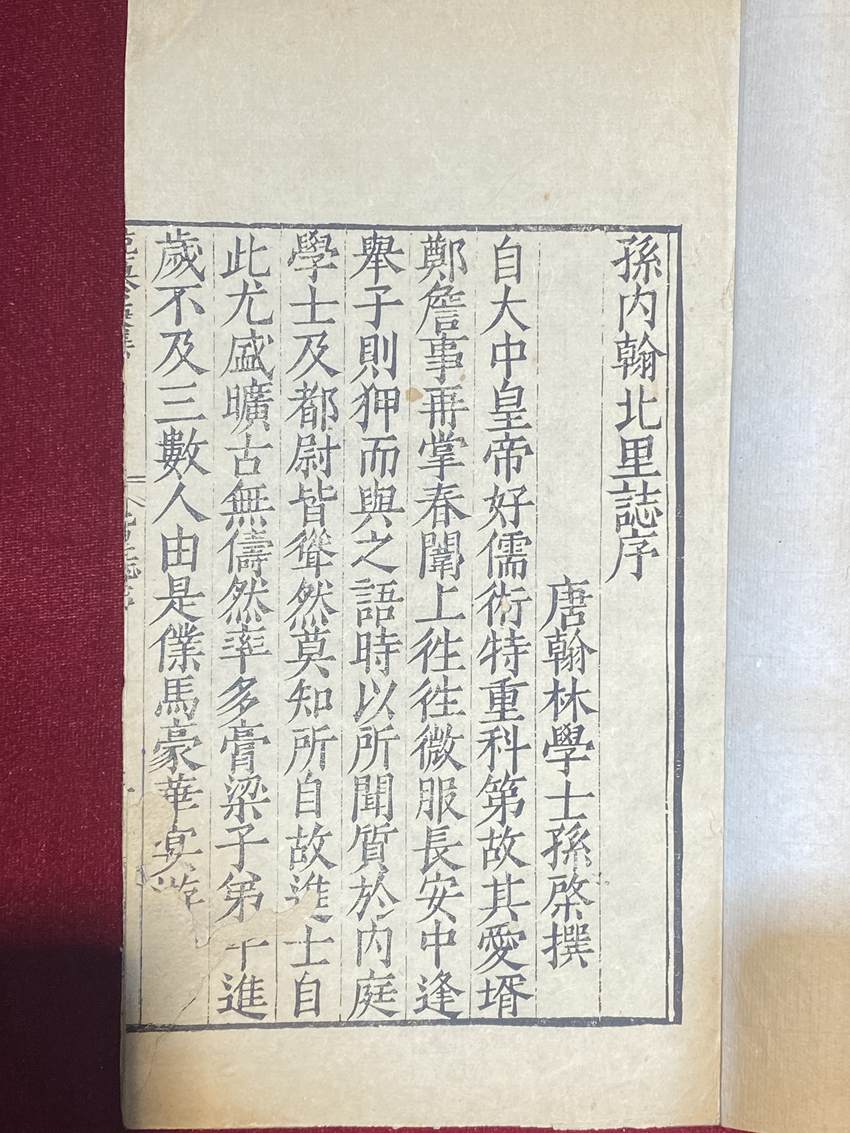 孫内翰北里誌序
唐翰林學士孫棨撰
自大中皇帝好儒術特重科第故其愛壻
鄭詹事再掌春闈上徃徃微服長安中逢
舉子則狎而與之語時以所聞質於内庭
學士及都尉皆聳然莫知所自故進士自
此尤盛曠古無儔然率多膏粱子弟平進
歲不及三數人由是僕馬豪華宴遊